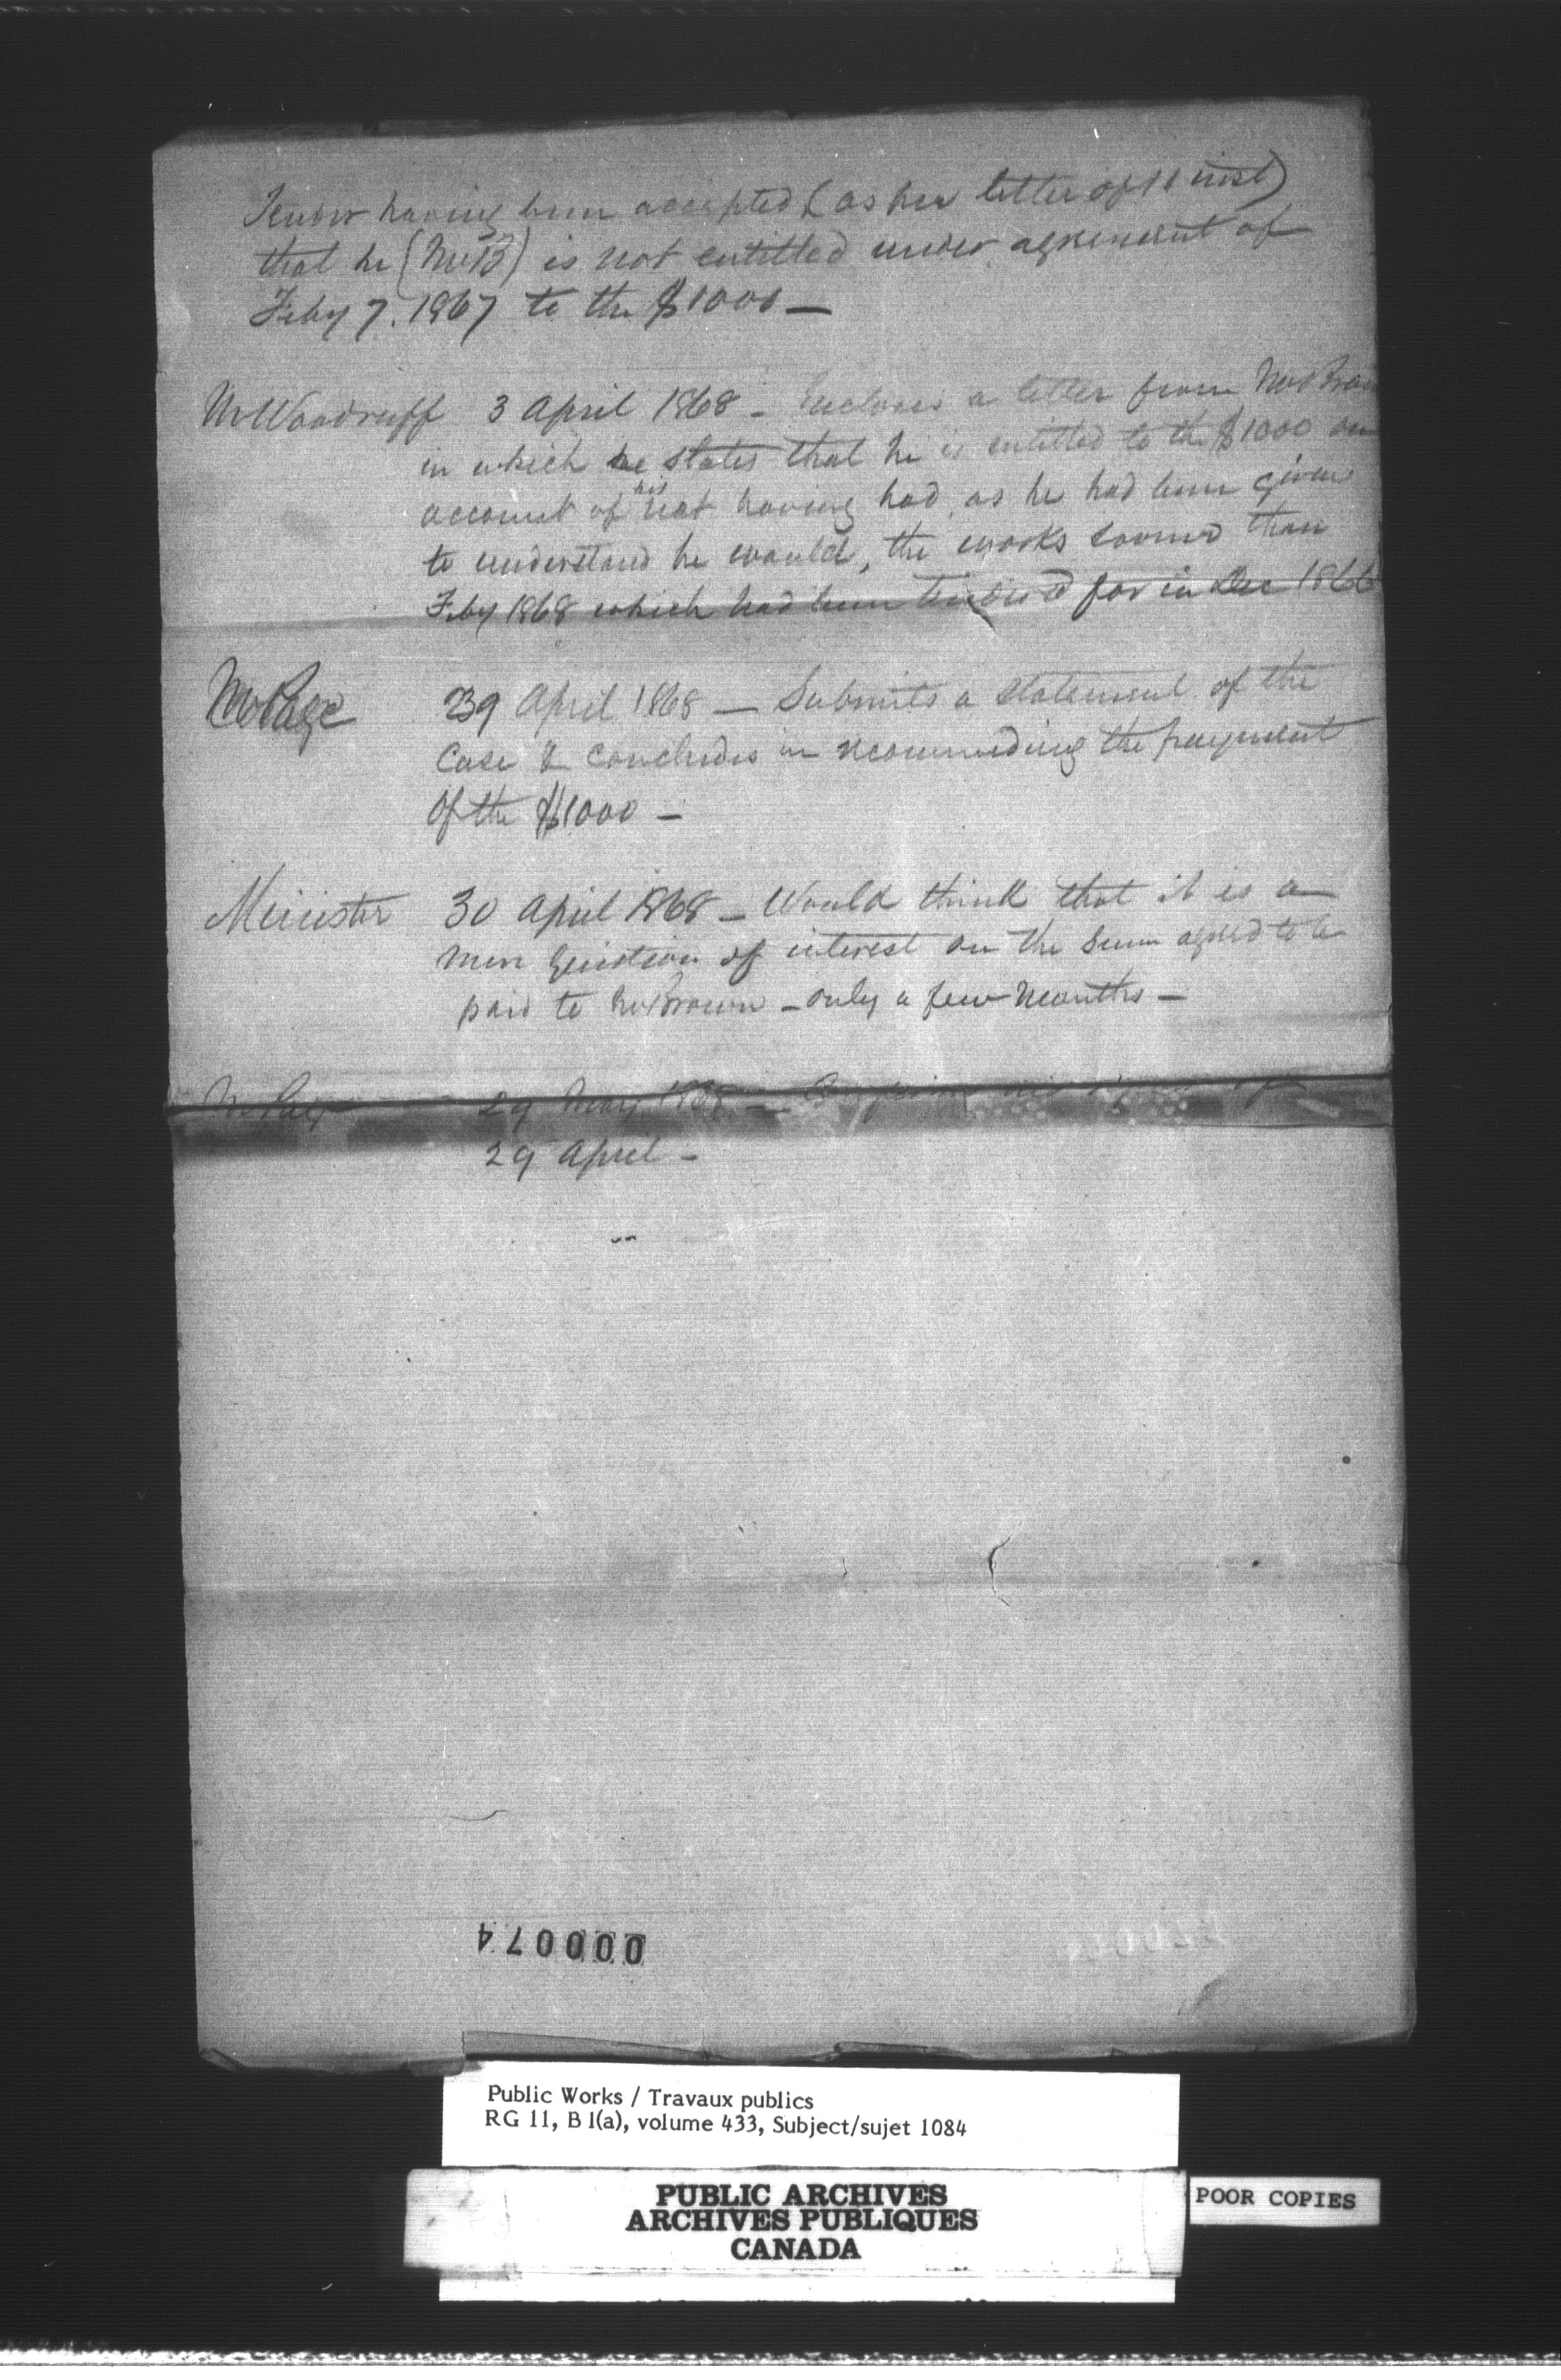 Tender having been accepted (as per letter of 11 inst)
that he (Mr B) is not entitled under agreement of
Feby 7. 1867 to the $1000 —
Mr Woodruff 3 April 1868 – Encloses a letter from Mr Brown
in which he states that he is entitled to the $1000 on
account of his not having had, as he had been given
to understand he would, the works sooner than
Feby 1868 which had been tendered for in Dec 1866
Mr Page 29 April 1868 — Submits a statement of the
case & concludes in recommending the payment
of the $1000 –
Minister 30 April 1868 – Would think that it is a
mere question of interest on the sum agreed to be
paid to Mr Brown – only a few months –
Mr Page 29 May 1868 — of
29 April –
000074
Public Works / Travaux publics
RG 11, B 1(a), volume 433, Subject/sujet 1084
PUBLIC ARCHIVES
ARCHIVES PUBLIQUES
CANADA
POOR COPIES